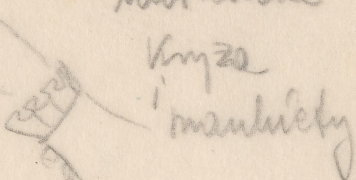 Kryza
i
mankiety